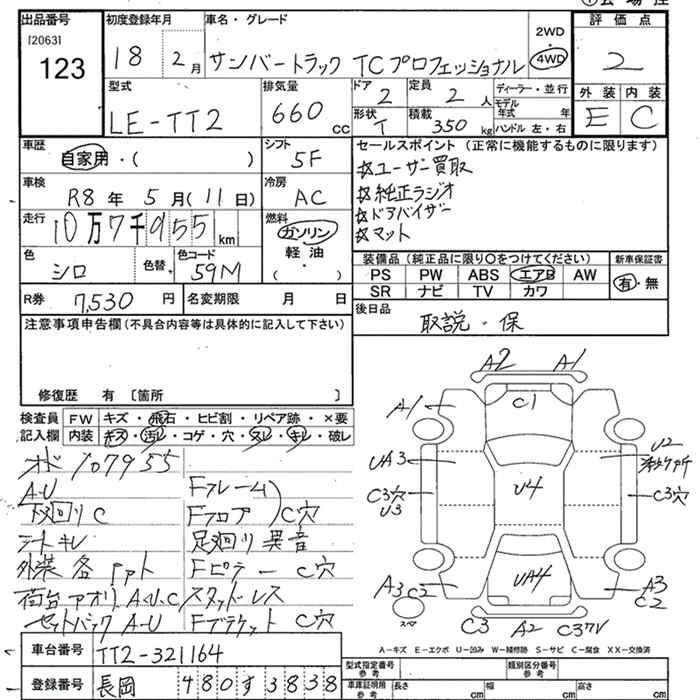 出品番号 初度登録年月 車名・グレード 評価点
[2063] 123 18 2月 サンバートラック TCプロフェッショナル 2WD 4WD 2
型式 排気量 ドア 定員 ディーラー・並行 外装 内装
LE-TT2 660cc 2 2人 モデル年式 年 E C
形状 T 積載 350kg ハンドル 左・右
車歴 シフト セールスポイント (正常に機能するものに限ります)
自家用・( ) 5F ☆ユーザー買取
車検 冷房 ☆純正ラジオ
R8年5月(11日) AC ☆ドアバイザー
走行 燃料 ☆マット
10万7千955km ガソリン
色 色替 色コード 軽油 装備品 (純正品に限り〇をつけてください) 新車保証書
シロ 59M ( ) PS PW ABS エアB AW 有・無
R券 7,530円 名変期限 月 日 SR ナビ TV カワ
後日品
注意事項申告欄 (不具合内容等は具体的に記入して下さい) 取説・保
修復歴 有 〔箇所 〕
検査員 FW キズ・飛石・ヒビ割・リペア跡・×要
記入欄 内装 キズ・汚レ・コゲ・穴・スレ・キレ・破レ
メボ 107955
A-U Fフレーム
下廻りC Fフロア C穴
シートキレ 足廻り異音
外装各 Fピラー C穴
荷台アオリ A.U.C スタッドレス
セットバック A-U Fブラケット C穴
A2 A1
A1 C1
UA3 U2
C3穴 U3 U4 C3穴
A3 C2 UA4 A3 C2
スペア C3 A2 C3
A-キズ E-エクボ U-凹み W-補修跡 S-サビ C-腐食 XX-交換済
車台番号 TT2-321164
型式指定番号 参考 類別区分番号 参考
登録番号 長岡 480す3838
車庫証明用 参考 長さ cm 幅 cm 高さ cm